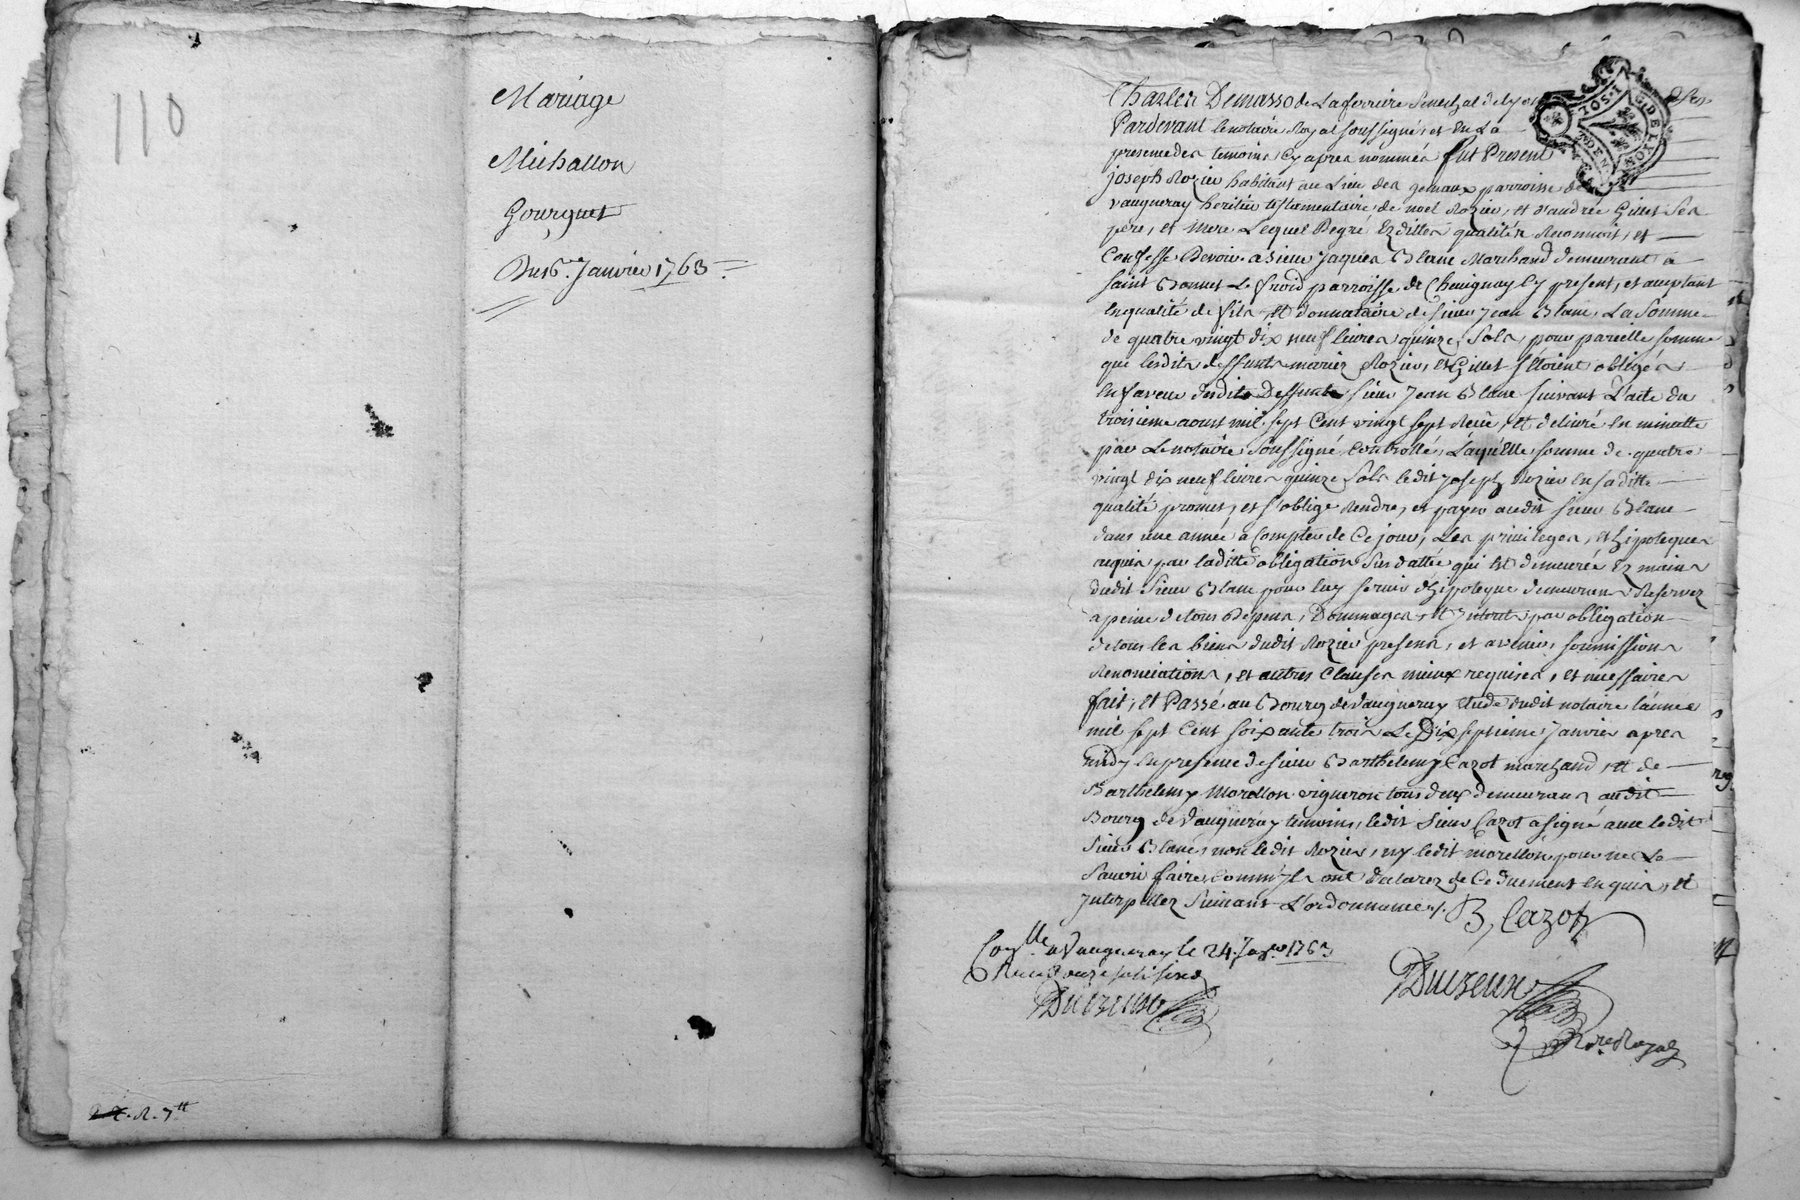 110
Mariage
Michallon
Gourguet
Du 16.e Janvier 1763.
R. 7tt
Charles Demasso de La ferriere Senechal de Lyon
Pardevant le notaire Royal soussigné, et en La
presence des temoins cy apres nommés fut Present
Joseph Rozier habitant au Lieu des parroisse de
vaugneray heritier testamentaire de noel Rozier, et d'andrée Gillet Ses
pere, et Mere Lequel Degré Ezdittes qualités Reconnoit, et
Confesse Devoir a sieur Jaques Blanc Marchand demeurant a
saint Bonnet Le froid parroisse de Chevignay Cy present, et acceptant
En qualité de fils et donnataire de sieur Jean Blanc, La Somme
de quatre vingt dix neuf livres quinze, Sols, pour pareille somme
que lesdits deffunts mariez Rozier, et Gillet s'étoient obligés
En faveur dudit Deffunt sieur Jean Blanc suivant L'acte du
troisieme aoust mil sept Cent vingt sept Receu, et delivré En minutte
par Le notaire soussigné, Controllé, Laquelle somme de quatre
vingt dix neuf livres quinze sols ledit Joseph Rozier En saditte
qualité promet, et s'oblige Rendre, et payer audit sieur Blanc
dans une année a Compter de Ce jour, Les privileges, et hipoteques
requis par laditte obligation Susdattée qui Est demeurée Ez mains
dudit Sieur Blanc pour luy servir d'hipoteque demeurans Reservez
a peine de tous Depens, Dommages, et Interets par obligation
de tous les biens dudit Rozier presens, et avenir, soumissions
Renonciations, et autres Clauses mieux requises, et necessaires
fait, et Passé au Bourg de Vaugneray Etude dudit notaire l'année
mil sept Cent soixante trois Le Dix septieme Janvier apres
midy En presence de sieur Barthelemy Cazot marchand, et de
Barthelemy Morellon vigneron tous deux demeurans audit
Bourg de Vaugneray temoins, ledit Sieur Cazot a signé avec ledit
Sieur Blanc, non ledit Rozier, ny ledit morellon pour ne Le
Savoir faire, Comm'Ils ont declarez de Ce Duement Enquis, et
Interpellez Suivant L'ordonnance. B, Cazot
Con.lle a Vaugneray le 24. Janv.er 1763
Receu douze sols six d
Duizeux
Duizeux
No.re Royal